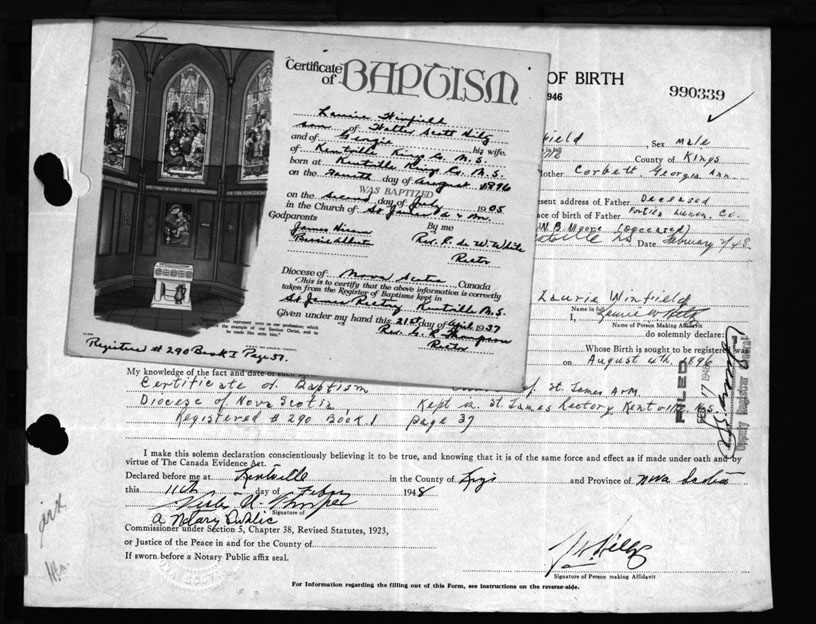 Certificate of BAPTISM
Laurie Winfield
son of Walter Scott Hilz
and of Georgie his wife,
of Kentville King Co. N.S.
born at Kentville King Co. N.S.
on the Fourth day of August 1896
WAS BAPTIZED
on the second day of July 1905
in the Church of St James
Godparents By me
James Hiram Rev. R. de W. White
Bessie Alberta Rector
Diocese of Nova Scotia Canada
This is to certify that the above information is correctly
taken from the Register of Baptisms kept in
St James Rectory Kentville N.S.
Given under my hand this 21st day of April 1937
Rector
represent unto us our profession; which
the example of our Saviour Christ, and to
be made like
Registered # 290 Book I Page 37.
OF BIRTH
946
990339
field, Sex male
County of Kings
other Corbett Georgia Ann.
esent address of Father Deceased
ce of birth of Father
(deceased)
Date February
Laurie Winfield
Name in full
I,
Name of Person Making Affidavit
do solemnly declare:
Whose Birth is sought to be registered, was
on August 4th, 1896
My knowledge of the fact and date of such
Certificate of Baptism of St. James
Diocese of Nova Scotia Kept in St James Rectory Kentville N.S.
Registered # 290 Book 1 page 37
FILED
FEB 17 1948
Deputy Registrar General
I make this solemn declaration conscientiously believing it to be true, and knowing that it is of the same force and effect as if made under oath and by
virtue of The Canada Evidence Act.
Declared before me at Kentville in the County of Kings and Province of Nova Scotia
this 11th day of Feby 1948
Signature of
a Notary Public
Commissioner under Section 5, Chapter 38, Revised Statutes, 1923,
or Justice of the Peace in and for the County of
If sworn before a Notary Public affix seal.
Signature of Person making Affidavit
For Information regarding the filling out of this Form, see instructions on the reverse-side.